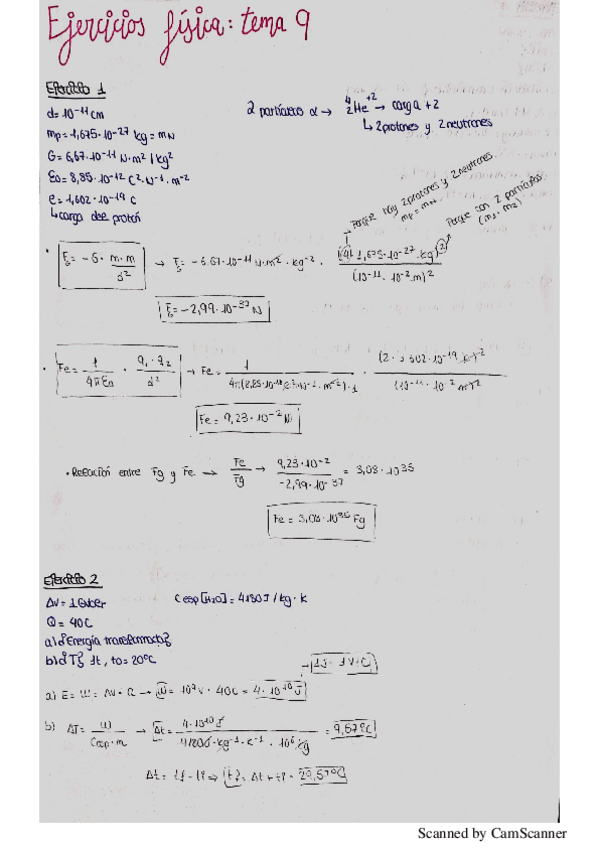 Ejercicios física: tema 9
Ejercicio 1
d= 10⁻¹¹ cm
mp = 1,675·10⁻²⁷ kg = mN
G= 6,67·10⁻¹¹ N·m²/kg²
E0= 8,85·10⁻¹² C²·N⁻¹·m⁻²
e= 1,602·10⁻¹⁹ C
↳ carga del protón
2 partículas α → ⁴₂He⁺² → carga +2
↳ 2 protones y 2 neutrones
Porque hay 2 protones y 2 neutrones
mp = mN
Porque son 2 partículas
(m1·m2)
· Fg = -G · m·m / d² → Fg = -6.67·10⁻¹¹ N·m²·kg⁻² · (4·1,675·10⁻²⁷ kg)² / (10⁻¹¹·10⁻² m)²
Fg = -2,99·10⁻³⁷ N
· Fe = 1 / 4πE0 · q1·q2 / d² → Fe = 1 / 4π(8,85·10⁻¹² C²·N⁻¹·m⁻²)·1 ·
Fe = 9,23·10⁻² N
· Relación entre Fg y Fe → Fe / Fg → 9,23·10⁻² / -2,99·10⁻³⁷ = 3,08·10³⁵
Fe = 3,08·10³⁵ Fg
Ejercicio 2
ΔV = 1 Gv
Q = 40C
a) ¿Energía transformada?
b) ¿T? 1t, to= 20°C
Cesp[H2O] = 4180J/kg·K
1J = 1V·C
a) E = W = ΔV · Q → W = 10⁹ V · 40C = 4·10¹⁰ J
b) ΔT = W / Cesp·m → Δt = 4·10¹⁰ J / 4180J·kg⁻¹·K⁻¹ · 10⁶ kg = 9,57°C
Δt = tf - ti ⇒ tf = Δt + ti = 29,57°C
Scanned by CamScanner